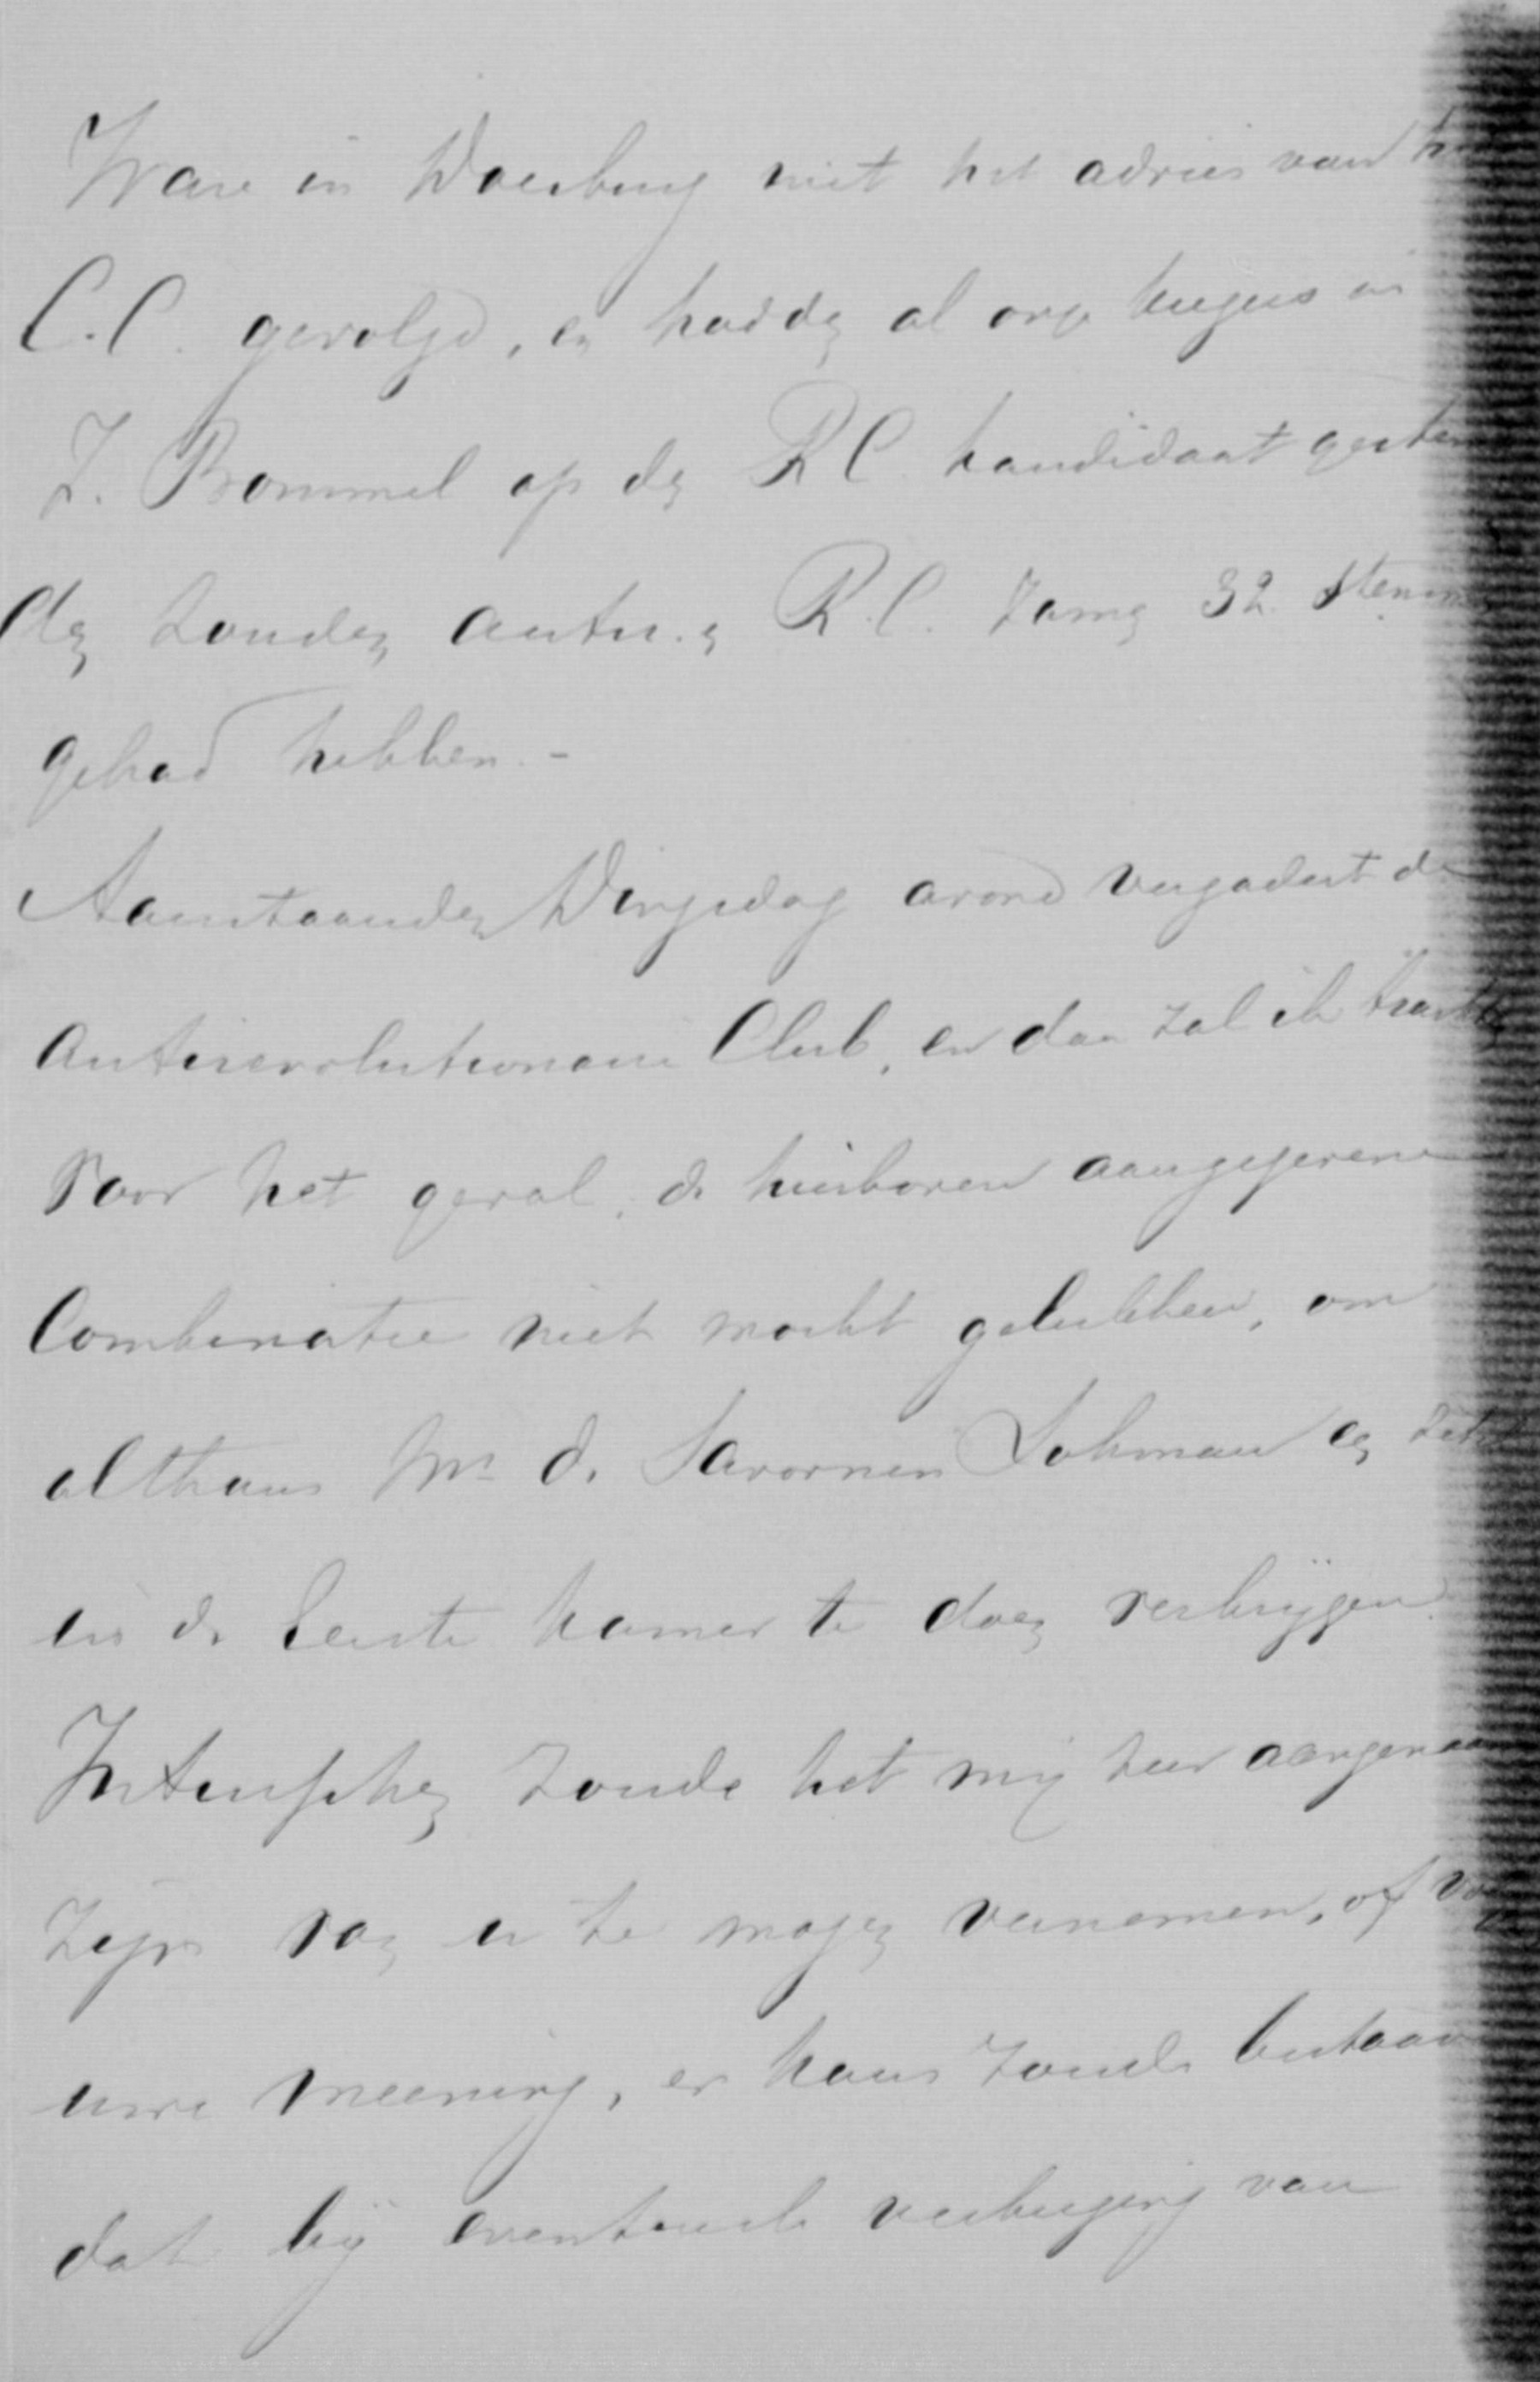 Ware in Doesburg niet het advies van het
C.C. gevolgd, en hadden al onze kiezers in
Z. Bommel op den R C. kandidaat gestemd
dan zouden antir. en R.C. zamen 32 stemmen
gehad hebben. -
Aanstaanden Dingsdag avond vergadert de
antirevolutionaire Club, en dan zal ik trachten
voor het geval, de hierboven aangegevene
Combinatie niet mocht gelukken, om
althans Mr de Savornin Lohman een zetel
in de Eerste kamer te doen verkrijgen.
Intusschen zoude het mij zeer aangenaam
zijn van u te mogen vernemen, of volgens
uwe meening, er kans zoude bestaan
dat bij eventueele verkrijging van